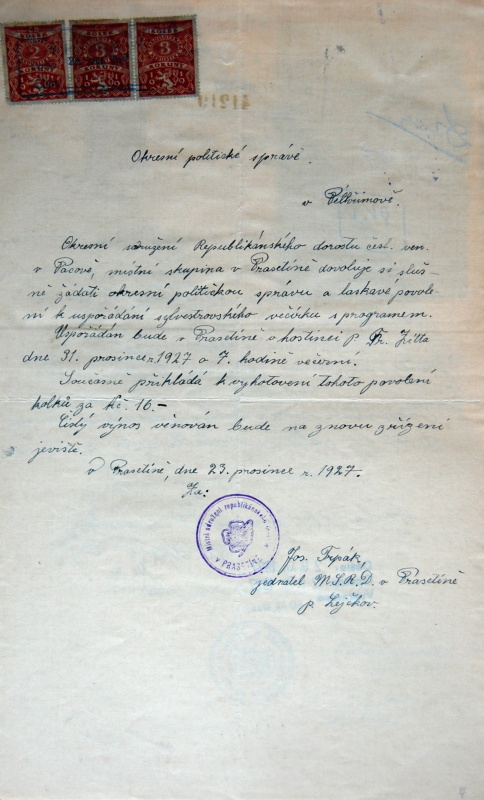 KOLEK
2
KORUNY
KOLEK
3
KORUNY
KOLEK
3
KORUNY
41219
Okresní politické správě
v Pelhřimově.
Okresní sdružení Republikánského dorostu čsl. ven.
v Pacově, místní skupina v Prasetíně dovoluje si sluš-
ně žádati okresní politickou správu o laskavé povole-
ní k uspořádání sylvestrovského večírku s programem.
Uspořádán bude v Prasetíně v hostinci p. Fr. Zitta
dne 31. prosince 1927 o 7. hodině večerní.
Současně přikládá k vyhotovení tohoto povolení
kolků za Kč. 16.-
Čistý výnos věnován bude na znovu zřízení
jeviště.
V Prasetíně, dne 23. prosince r. 1927.
Za:
Místní sdružení republikánského
v PRASETÍNĚ
Jos. Trpák,
jednatel M.S.R.D. v Prasetíně
p. Lejčkov.